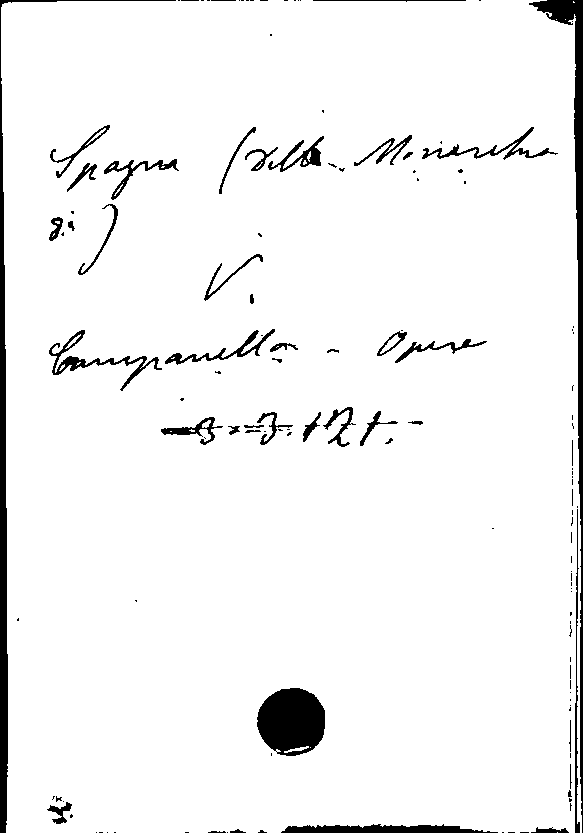 Spagna (Della Monarchia
di)
V.
Campanella - Opere
3.3.121.